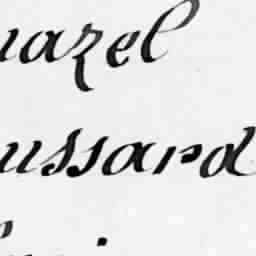 uazel
ussard